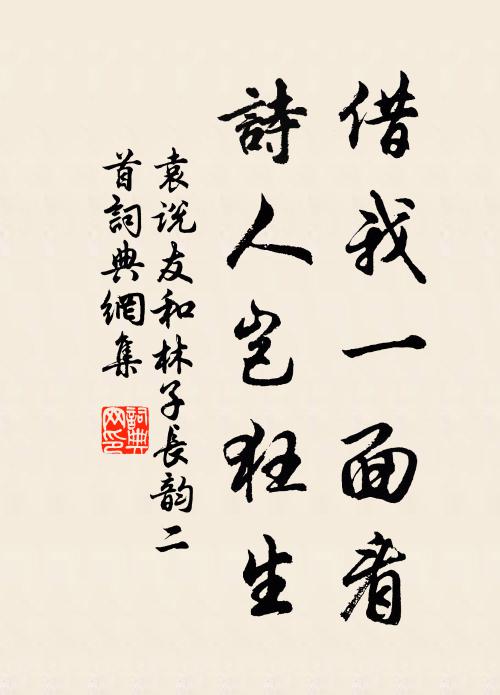 借我一面看
詩人豈狂生
袁说友和林子長韵二
首詞典網集
詞典
网印